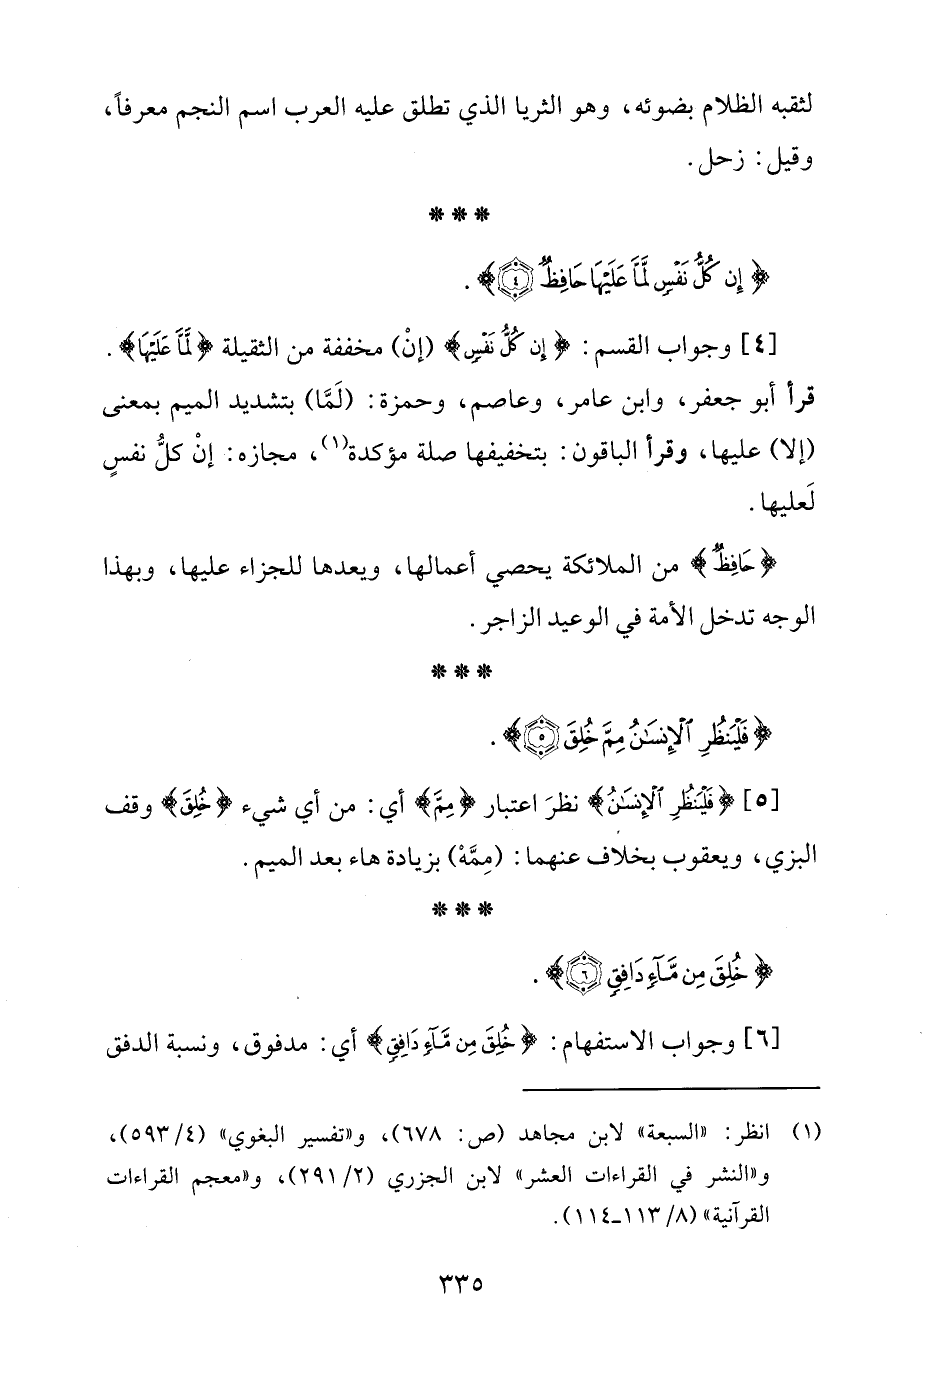 لثقبه الظلام بضوئه، وهو الثريا الذي تطلق عليه العرب اسم النجم معرفاً،
وقيل: زحل.
***
﴿إِن كُلُّ نَفْسٍ لَّمَّا عَلَيْهَا حَافِظٌ ٤﴾.
[٤] وجواب القسم: ﴿إِن كُلُّ نَفْسٍ﴾ (إنْ) مخففة من الثقيلة ﴿لَّمَّا عَلَيْهَا﴾.
قرأ أبو جعفر، وابن عامر، وعاصم، وحمزة: (لَمَّا) بتشديد الميم بمعنى
(إلا) عليها، وقرأ الباقون: بتخفيفها صلة مؤكدة(١)، مجازه: إنْ كلُّ نفسٍ
لَعليها.
﴿حَافِظٌ﴾ من الملائكة يحصي أعمالها، ويعدها للجزاء عليها، وبهذا
الوجه تدخل الأمة في الوعيد الزاجر.
***
﴿فَلْيَنظُرِ ٱلْإِنسَٰنُ مِمَّ خُلِقَ ٥﴾.
[٥] ﴿فَلْيَنظُرِ ٱلْإِنسَٰنُ﴾ نظرَ اعتبار ﴿مِمَّ﴾ أي: من أي شيء ﴿خُلِقَ﴾ وقف
البزي، ويعقوب بخلاف عنهما: (مِمَّهْ) بزيادة هاء بعد الميم.
***
﴿خُلِقَ مِن مَّآءٍ دَافِقٍ ٦﴾.
[٦] وجواب الاستفهام: ﴿خُلِقَ مِن مَّآءٍ دَافِقٍ﴾ أي: مدفوق، ونسبة الدفق
(١) انظر: «السبعة» لابن مجاهد (ص: ٦٧٨)، و«تفسير البغوي» (٤/ ٥٩٣)،
و«النشر في القراءات العشر» لابن الجزري (٢/ ٢٩١)، و«معجم القراءات
القرآنية» (٨/ ١١٣-١١٤).
٣٣٥